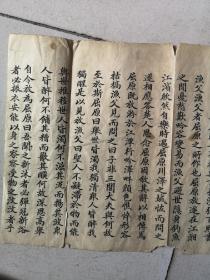 漁父者屈原之所作也屈原放逐在江湘
之間憂愁歎吟容變易而漁父避世隱身釣魚
江濱欣然自樂時遇屈原川澤之域怪而問之
遂相應答楚人思念屈原因敘其辭以相傳焉
屈原既放游於江潭行吟澤畔顏色憔悴形容
枯槁漁父見而問之曰子非三閭大夫與何故
至於斯屈原曰舉世皆濁我獨清衆人皆醉我
獨醒是以見放漁父曰聖人不凝滯於物而能
與世推移世人皆濁何不淈其泥而揚其波衆
人皆醉何不餔其糟而歠其醨何故深思高舉
自令放為屈原曰吾聞之新沐者必彈冠新浴
者必振衣安能以身之察察受物之汶汶者乎